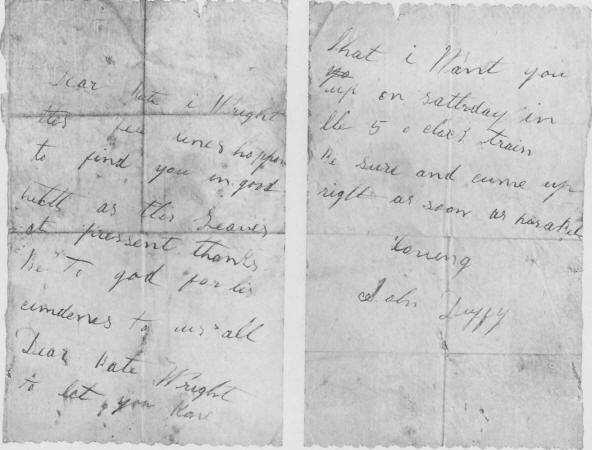 Dear Kate i Wright
thes few lines hoppen
to find you in good
helth as this Leaves
at pressent thanks
Be To god for his
cumdenes to us all
Dear Kate Wright
to let you know
that i Want you
up on satterday in
the 5 o clock train
Be sure and cume up
right as soon as
John Duffy